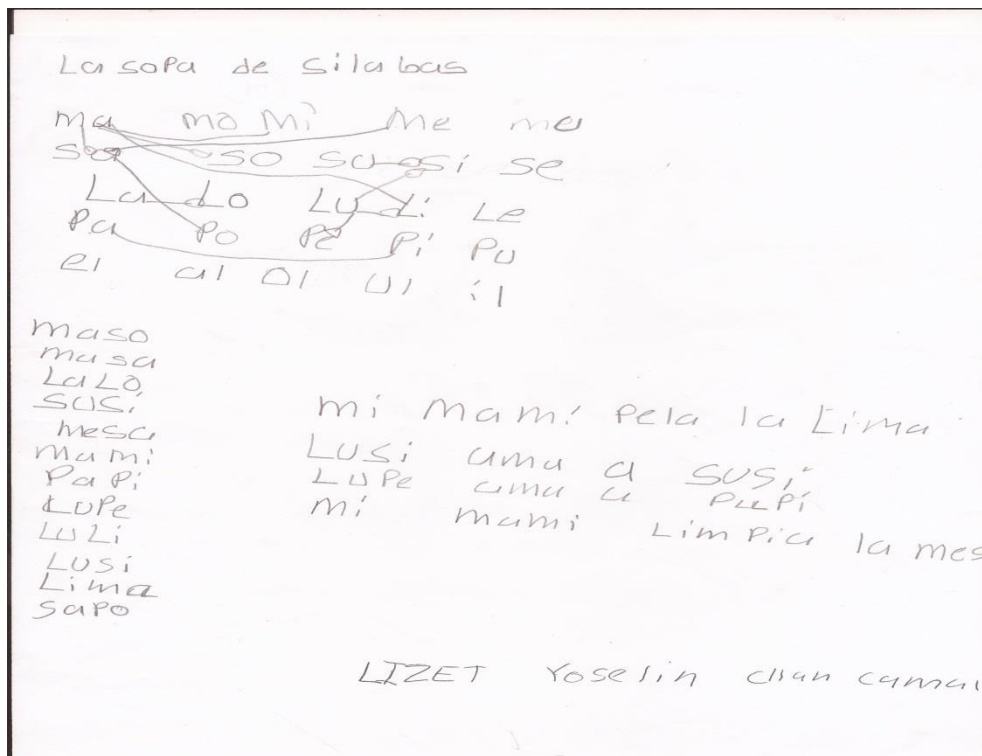 La sopa de silabas
ma mo mi me mu
sa so su si se
La Lo Lu Li Le
Pa Po Pe Pi Pu
el al ol ul il
maso
masa
LaLo
susi
mesa
mami
Papi
LuPe
LuLi
Lusi
Lima
sapo
mi mamí pela la Lima
Lusi ama a susi
LuPe ama a papi
mi mami Limpia la mes
LIZET Yoselin chan